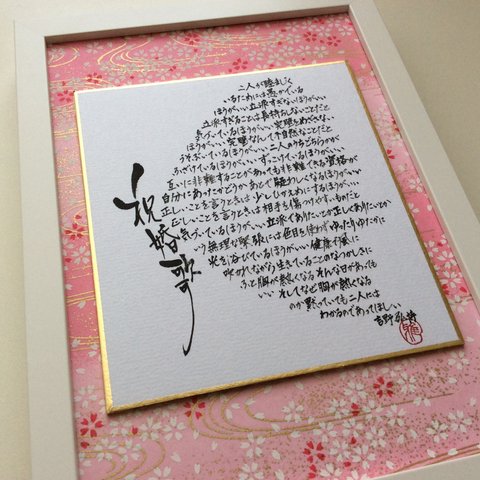 祝婚歌
二人が睦まじく
いるためには愚かでいる
ほうがいい立派すぎないほうがいい
立派すぎることは長持ちしないことだと
気づいているほうがいい完璧をめざさない
ほうがいい完璧なんて不自然なことだと
うそぶいているほうがいい二人のうちどちらかが
ふざけているほうがいいずっこけているほうがいい
互いに非難することがあっても非難できる資格が
自分にあったかどうかあとで疑わしくなるほうがいい
正しいことを言うときは少しひかえめにするほうがいい
正しいことを言うときは相手を傷つけやすいものだと
気づいているほうがいい立派でありたいとか正しくありたいとか
いう無理な緊張には色目を使わずゆったりゆたかに
光を浴びているほうがいい健康で風に
吹かれながら生きていることのなつかしさに
ふと胸が熱くなるそんな日があっても
いいそしてなぜ胸が熱くなる
のか黙っていても二人には
わかるのであってほしい
吉野弘